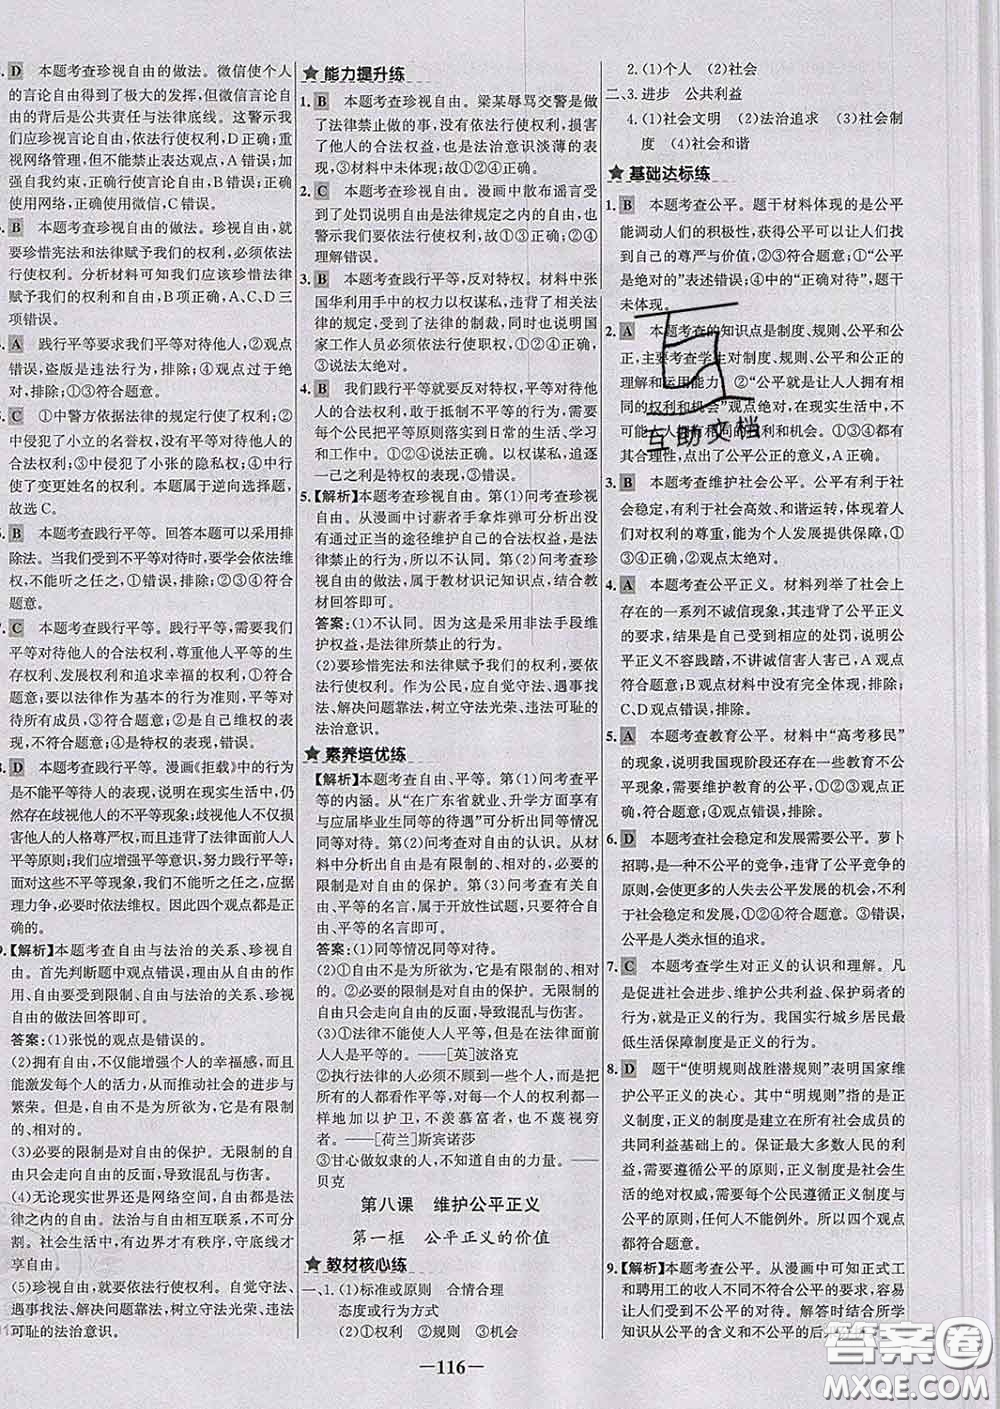 D 本题考查珍视自由的做法。微信使个人
的言论自由得到了极大的发挥,但微信言论自
由的背后是公共责任与法律底线。这警示我
们应珍视自由,依法行使权利,D正确;重视网
重视网络管理,但不能禁止表达观点,A错误;
强自我约束,正确行使言论自由,B错误;正确
使用网络,正确使用微信,C错误。
B 本题考查珍视自由的做法。珍视自由,就
要珍惜宪法和法律赋予我们的权利,必须依法
行使权利。分析材料可知我们应该珍惜法律
赋予我们的权利和自由,B项正确,A、C、D三
项错误。
A 践行平等要求我们平等对待他人,②观点
错误,盗版是违法行为,排除;④观点过于绝
对,排除;①③符合题意。
C ①中警方依据法律的规定行使了权利;②中
侵犯了小立的名誉权,没有做到平等对待他人的
合法权利;③侵犯了小张的隐私权;④错误行
使了变更姓名的权利。本题属于逆向选择题,
故选C。
B 本题考查践行平等。回答本题可以采用排
除法。当我们受到不平等对待时,要学会依法维
权,不能听之任之,①错误,排除;②③④符合
题意。
C 本题考查践行平等。践行平等,需要我们
平等对待他人的合法权利,尊重他人平等的生
存权利、发展权利和追求幸福的权利,①符合
题意;需要以法律作为基本的行为准则,平等对
待所有成员,③符合题意;②是自己维权的表
现,不符合题意;④是特权的表现,排除。
D 本题考查践行平等。漫画《拒载》中的行为
是不能平等待人的表现;在现实生活中,仍
然存在歧视他人的不平等现象;歧视他人不仅
损害他人的人格尊严权,而且违背了法律面前人人
平等原则;我们应增强平等意识,努力践行平等;
面对这些不平等现象,我们不能听之任之,应据
理力争,必要时依法维权。因此四个观点都是正
确的。
【解析】本题考查自由与法治的关系、珍视自
由。首先判断题中观点错误,理由从自由的作
用、自由是受到限制、自由与法治的关系、珍视
自由的做法回答即可。
答案:(1)张悦的观点是错误的。
(2)拥有自由,不仅能增强个人的幸福感,而且
能激发每个人的活力,从而推动社会的进步与
繁荣。但是,自由不是为所欲为,它是有限制
的、相对的。
(3)必要的限制是对自由的保护。无限制的自
由只会走向自由的反面,导致混乱与伤害。
(4)无论现实世界还是网络空间,自由都是法
律之内的自由。法治与自由相互联系、不可分
割。社会生活中自由和秩序,守底线才有真正
自由。
(5)珍视自由,就要依法行使权利。自觉守法、
遇事找法、解决问题靠法,树立守法光荣、违法
可耻的法治意识。
★ 能力提升练
1. B 本题考查珍视自由。梁某辱骂交警是做
了法律禁止做的事,没有依法行使权利,损害了
他人的合法权益,也是法治意识淡薄的表
现,③材料中未体现;故①②④符合题意。
2. C 本题考查珍视自由。漫画中散布谣言受
到了处罚说明自由是法律规定之内的自由,也
警示我们要依法行使权利,①③正确;②④理
解错误。
3. B 本题考查践行平等,反对特权。材料中张
国华利用手中的权力以权谋私,违背了相关法
律的规定,受到了法律的制裁,同时也说明国
家工作人员必须依法行使职权,①②④正确,
③说法太绝对。
4. B 我们践行平等就要反对特权,平等对待他人
的合法权利,敢于抵制不平等的行为,需要我
们每个公民把平等原则落实在日常的生活、学习
和工作中。①②④符合题意。以权谋私、追逐
一己之利是特权的表现,③错误。
5.【解析】本题考查珍视自由。第(1)问考查珍视
自由。从漫画中讨薪者手拿炸弹可分析出他
没有通过正当的途径维护自己的合法权益,是
法律禁止的行为,所以不认同。第(2)问考查珍
视自由的做法,属于教材识记知识点,结合教
材回答即可。
答案:(1)不认同。因为这是采用非法手段维
护权益,是法律所禁止的行为。
(2)要珍惜宪法和法律赋予我们的权利,要依
法行使权利。作为公民,应自觉守法、遇事找
法、解决问题靠法,树立守法光荣、违法可耻的
法治意识。
★ 素养培优练
【解析】本题考查自由、平等。第(1)问考查平
等的内涵。从“在广东省就业、升学方面享有
与应届毕业生同等的待遇”可分析出同等情况
同等对待。第(2)问考查对自由的认识。从材
料中分析出自由是有限制的、相对的,必要的
限制是对自由的保护。第(3)问考查有关自
由、平等的名言,属于开放性试题,符合题意
即可。
答案:(1)同等情况同等对待。
(2)①自由不是为所欲为,它是有限制的、相对
的。②必要的限制是对自由的保护。无限制的自
由只会走向自由的反面,导致混乱与伤害。
(3)①法律不能使人人平等,但是在法律面前
人人是平等的。——[英]波洛克
②执行法律的人必须不顾一切,对每个人都一
样地加以护卫,不羡慕富者,也不蔑视穷
者。——[荷兰]斯宾诺莎
③甘心做奴隶的人,不知道自由的力量。——
贝克
第八课 维护公平正义
第一框 公平正义的价值
★ 教材核心练
一、1.(1)标准或原则 合情合理
态度或行为方式
(2)①权利 ②规则 ③机会
2.(1)个人 (2)社会
二、3.进步 公共利益
4.(1)社会文明 (2)法治追求 (3)社会制
度 (4)社会和谐
★ 基础达标练
1. B 本题考查公平。题干材料体现的是公平
能调动人们的积极性,获得公平可以让人们感
受到自己的尊严与价值,②③符合题意;①“公平是
绝对的”表述错误;④中的“正确对待”,题干
未体现。
2. A 本题考查的知识点是制度、规则、公平和公
正,主要考查学生对制度、规则、公平和公正的
理解和运用能力。②“公平就是让人人拥有相
同的权利和机会”观点绝对,在现实生活中,不
可能人人拥有相同的权利和机会。①③④都
有其合理性,点出了公平公正的意义,A正确。
3. B 本题考查维护社会公平。公平有利于社
会稳定,有利于社会高效、和谐运转,体现着人
们对权利的尊重,能为个人发展提供保障,①
③④正确,②观点太绝对。
4. A 本题考查公平正义。材料列举了社会上
存在的一系列不诚信现象,其违背了公平正义
的要求,结果是自己受到相应的处罚,说明公平
正义不容践踏,不讲诚信害人害己,A观点
符合题意;B观点材料中没有完全体现,排除;
C、D观点错误,排除。
5. A 本题考查教育公平。材料中“高考移民”
的现象,说明我国现阶段还存在一些教育不公平
现象,需要维护教育的公平,①②③观点正
确,符合题意;④观点错误,排除。
6. D 本题考查社会稳定和发展需要公平。萝卜
招聘,是一种不公平的竞争,违背了公平竞争的
原则,会使更多的人失去公平发展的机会,不利于
社会稳定和发展,①②④符合题意;③错误,
公平是人类永恒的追求。
7. C 本题考查学生对正义的认识和理解。凡
是促进社会进步、维护公共利益、保护弱者的
行为,都是正义的行为。我国实行城乡居民最
低生活保障制度是正义的行为。
8. D 题干“使明规则战胜潜规则”表明国家维
护公平正义的决心。其中“明规则”指的是正
义制度,正义的制度是建立在所有社会成员的
共同利益基础上的。保证最大多数人民的利
益,需要遵循公平的原则,正义制度是社会生活
的绝对权威,需要每个公民遵守正义制度,在制度
面前,任何人不能例外。所以四个观点
都符合题意。
9.【解析】本题考查公平。从漫画中可知正式工
和聘用工的收入相差巨大,不公平的对待容易
让人们受到不公平的对待。解答时结合所学
知识从公平的含义和不公平的后
—116—
互助文档
答案圈
MXQE.COM